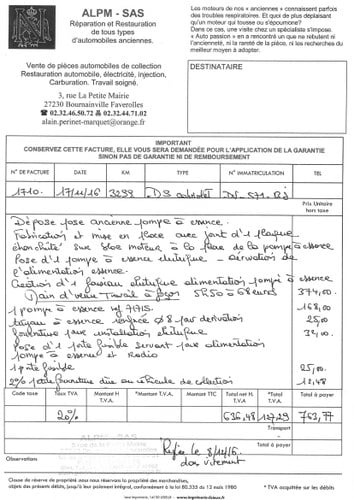 ALPM - SAS
Réparation et Restauration
de tous types
d'automobiles anciennes.
Les moteurs de nos « anciennes » connaissent parfois
des troubles respiratoires. Et quoi de plus déplaisant
qu'un moteur qui tousse ou s'époumone?
Dans ce cas, une visite chez un spécialiste s'impose.
« Auto passion » en a rencontré un que ne rebutent ni
l'ancienneté, ni la rareté de la pièce, ni les recherches du
meilleur moyen à adopter.
Vente de pièces automobiles de collection
Restauration automobile, électricité, injection,
Carburation. Travail soigné.
3, rue La Petite Mairie
27230 Bournainville Faverolles
☎ 02.32.46.50.72 & 02.32.44.71.02
alain.perinet-marquet@orange.fr
DESTINATAIRE
IMPORTANT
CONSERVEZ CETTE FACTURE, ELLE VOUS SERA DEMANDÉE POUR L'APPLICATION DE LA GARANTIE
SINON PAS DE GARANTIE NI DE REMBOURSEMENT
N° DE FACTURE DATE KM TYPE N° IMMATRICULATION TEL
1710. 17/11/16 3299 DS cabriolet
Prix Unitaire
hors taxe
Dépose pose ancienne pompe à essence.
Fabrication et mise en place avec joint d'1 plaque
étanchéité sur bloc moteur à la place de la pompe à essence
Pose d'1 pompe à essence électrique - dérivation de
l'alimentation essence.
Création d'1 faisceau électrique alimentation pompe à essence
Main d'œuvre Travail à façon 5H50 à 68 euros 374,00
1 pompe à essence ref 71715. 168,00
tuyau à essence Ø 8 par dérivation 25,00
Fourniture installation électrique 32,00
Pose d'1 porte fusible servant pour alimentation
pompe à essence et radio
1 porte fusible 25,00
2% petite fourniture due au véhicule de collection 12,48
Code taxe Taux TVA Montant H T.V.A. *Total T.V.A. Montant TTC Total net H. T.V.A. *Total T.V.A. Total à payer
20% 636,48 127,29 763,77
Transport
ALPM - SAS
Total à payer
Observations
Réglée le 8/11/16.
par virement
Clause de réserve de propriété sous nous réservons la propriété des marchandises,
objets des présents débits, jusqu'à leur paiement intégral, conformément à loi 80.335 du 12 mars 1980
* TVA acquittée sur les débits